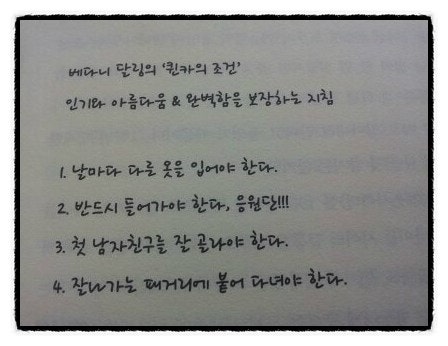 베다니 달링의 '퀸카의 조건'
인기와 아름다움 & 완벽함을 보장하는 지침
1. 날마다 다른 옷을 입어야 한다.
2. 반드시 들어가야 한다, 응원단!!!
3. 첫 남자친구를 잘 골라야 한다.
4. 잘나가는 패거리에 붙어 다녀야 한다.